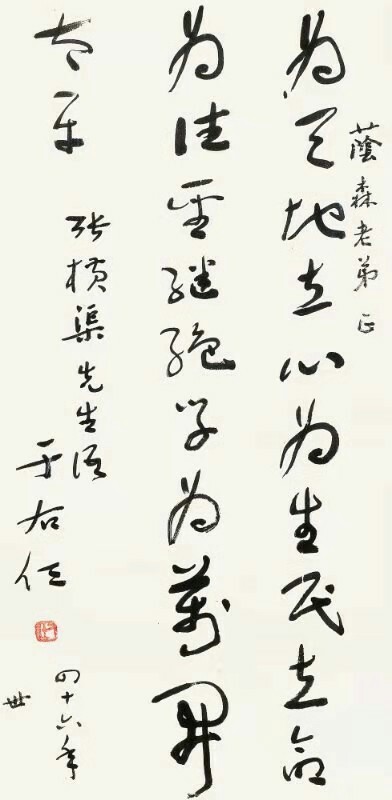 蔭森老弟正
為天地立心為生民立命
為往聖繼絕學為萬開
太平
張橫渠先生語
于右任
四十六年
世